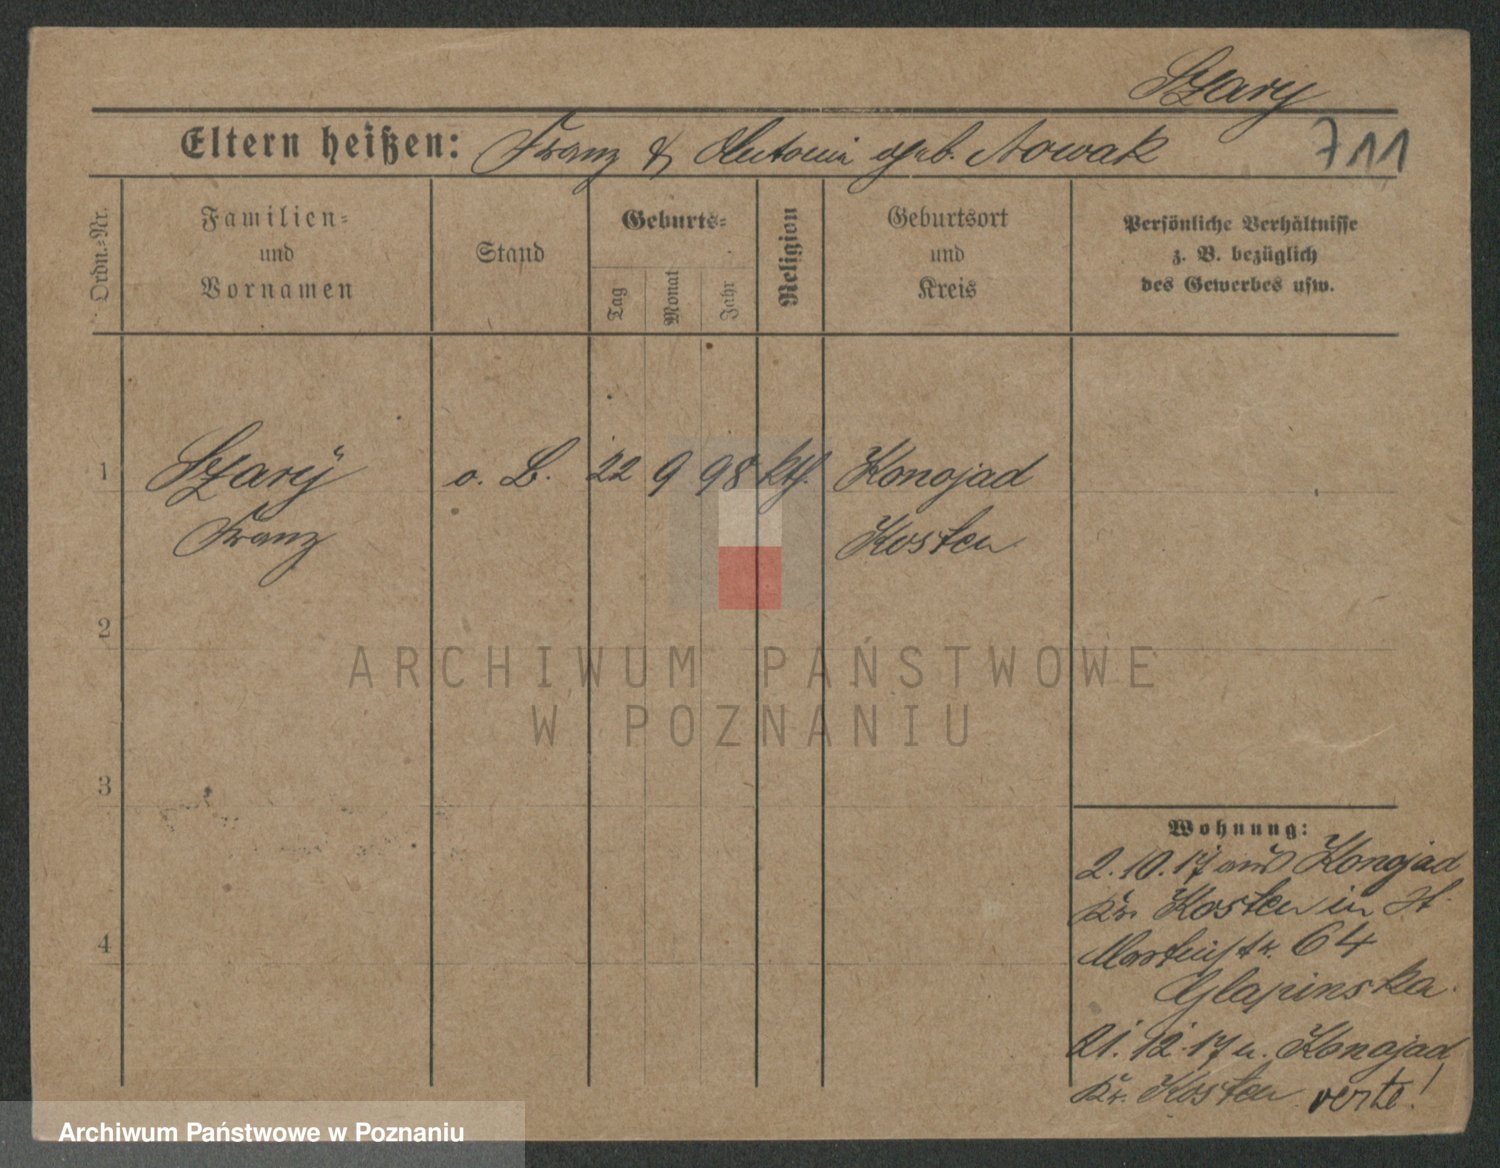 Szary
Eltern heißen: Franz & Antonie geb. Nowak
711
Ordn.-Nr.
Familien-
und
Vornamen
Stand
Geburts-
Tag
Monat
Jahr
Religion
Geburtsort
und
Kreis
Persönliche Verhältnisse
z. B. bezüglich
des Gewerbes usw.
1 Szary o. B. 22 9 98 kth. Konojad
Franz Kosten
2
ARCHIWUM PAŃSTWOWE
W POZNANIU
3
4
Wohnung:
2.10.17 aus Konojad
Kr. Kosten in St
Martinstr. 64
Glapinska.
21.12.17 n. Konojad
Kr. Kosten verte!
Archiwum Państwowe w Poznaniu